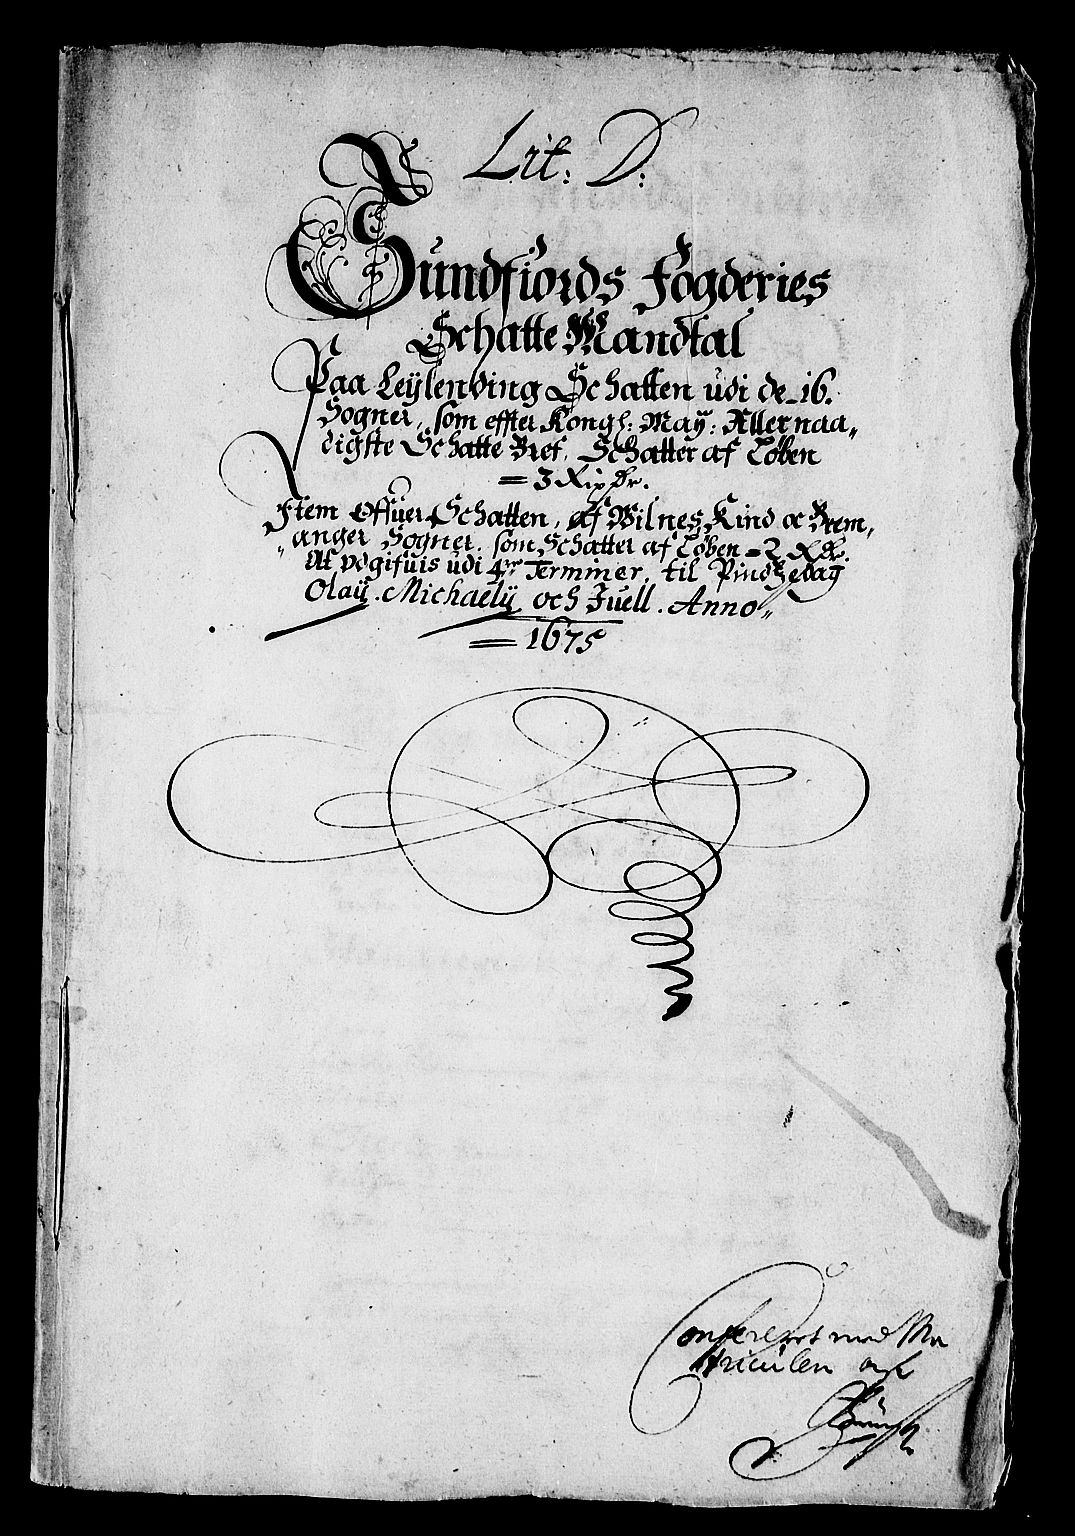 Lit: D:
Sundfiords Fogderies
Schatte Mandtal
Paa Leÿlending Schatten udi de 16.
Sogner, som effter Kongl: Maÿ: Allernaa„
digste Schatte Bref, Schatter af Løben
= 3 Rix dr.
Item Offuer Schatten, af Wilnes, Kind oc Brem„
„anger Sogner. som Schatter af Løben = 2 Rdr.
At udgifuis udi 4re Terminer, til Pindtzedag
Olaÿ. Michaelÿ och Juell. Anno„
= 1675
Confereret med Ma
triculen